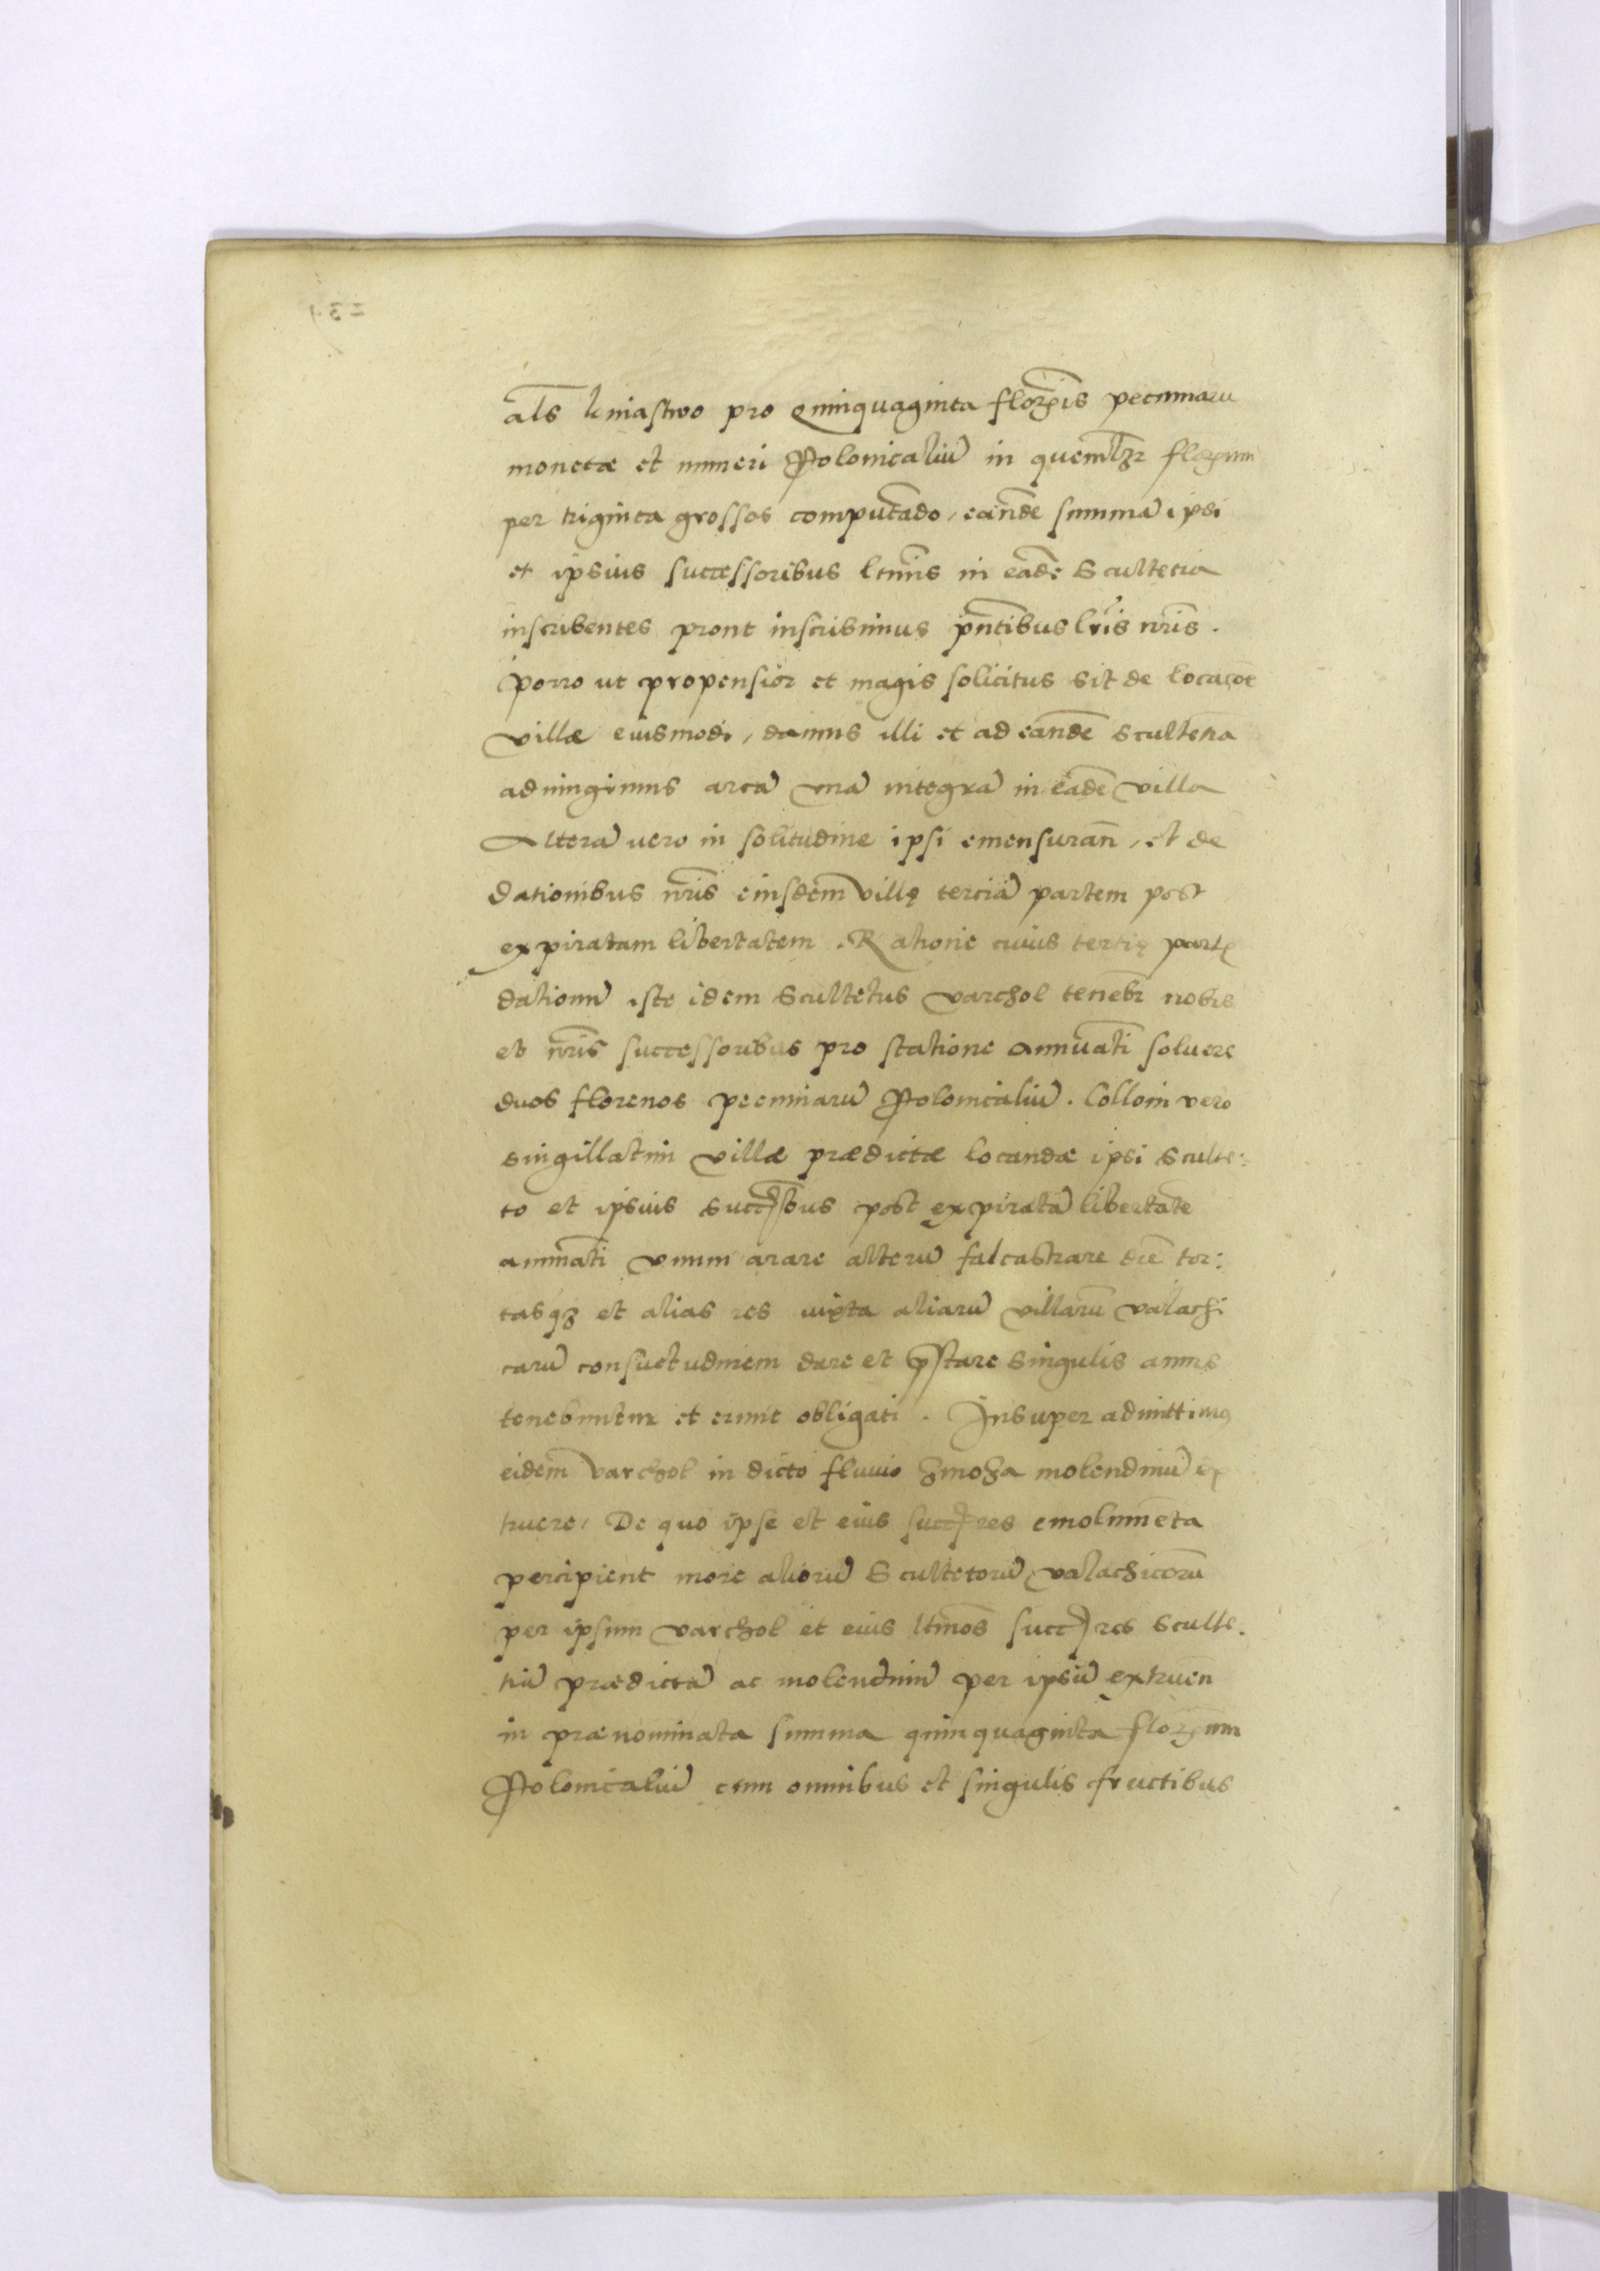 als kniastwo pro Quinquaginta florenis pecuniarū
monetæ et numeri Polonicaliū in quemlꝫ florenum
per triginta grossos computādo, eandē summā ipsi
et ipsius successoribus ltimis in eadē Scultetia
inscribentes prout inscribimus pntibus lris nris.
Porro ut propensior et magis solicitus sit de locacōe
villæ eiusmodi, damus illi et ad eandē scultetiā
adiungimus areā unā integrā in eadē villa
Alterā vero in solitudine ipsi emensurañ, et de
dationibus nris eiusdem villę terciā partem post
expiratam libertatem. Ratione cuius tertię partis
dationū iste idem Scultetus Varchol tenebr nobis
et nris successoribus pro statione annuati soluere
duos florenos pecuniarū Polonicaliū. Coloni vero
singillatim villæ prædictæ locandæ ipsi sculte:
to et ipsius succssbus post expiratā libertatē
annuati unum arare alterū falcastrare diē tor:
tasqꝫ et alias res iuxta aliarū villarū valachi
carū consuetudinem dare et pstare singulis annis
tenebuntur et erunt obligati. Insuper admittimus
eidem Varchol in dicto fluvio
molendinū ex
truere, De quo ipse et eius succres emolumēta
percipient more aliorū Scultetorū valachicorū
per ipsum Varchol et eius ltimos succres sculte.
tiā prædictā ac molendinū per ipsū extruen
in prænominata summa quinquaginta florenum
Polonicaliū cum omnibus et singulis fructibus